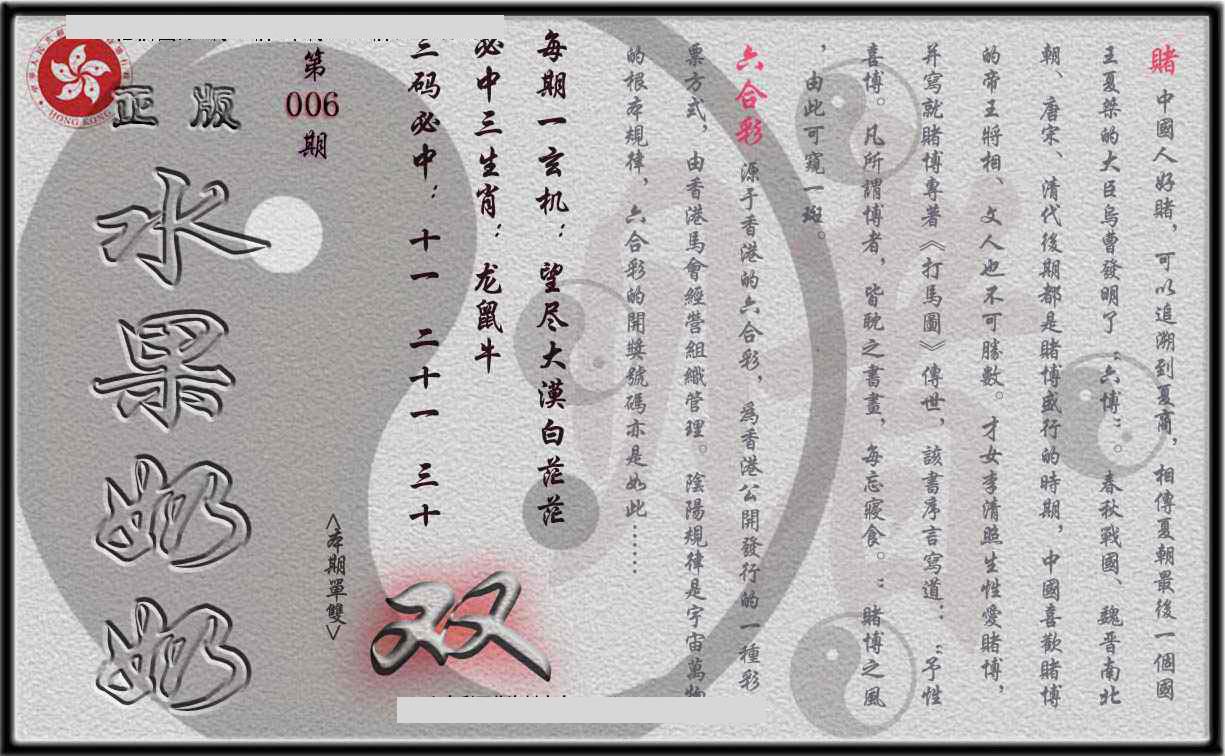 賭 中國人好賭，可以追溯到夏商，相傳夏朝最後一個國
王夏桀的大臣烏曹發明了“六博”。春秋戰國、魏晋南北
朝、唐宋、清代後期都是賭博盛行的時期，中國喜歡賭博
的帝王將相、文人也不可勝數。才女李清照生性愛賭博，
并寫就賭博專著《打馬圖》傳世，該書序言寫道：“予性
喜博。凡所謂博者，皆耽之書畫，每忘寢食。”賭博之風
，由此可窺一斑。
六合彩 源于香港的六合彩，為香港公開發行的一種彩
票方式，由香港馬會經營組織管理。陰陽規律是宇宙萬物
的根本規律，六合彩的開獎號碼亦是如此……
每期一玄机：望尽大漠白茫茫
必中三生肖：龙鼠牛
三码必中：十一 二十一 三十
<本期單雙>
双
第
006
期
正版
水果奶奶
HONG KONG